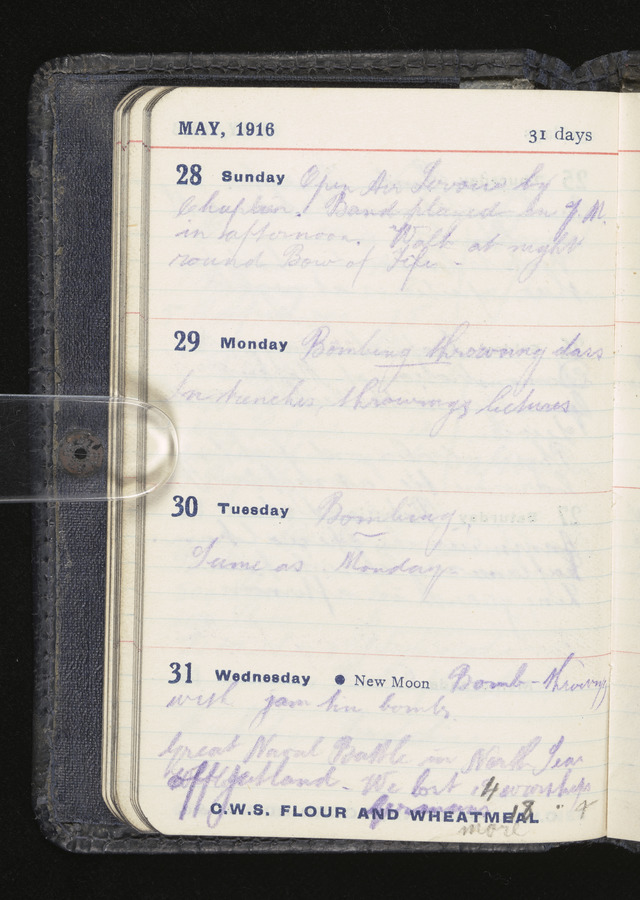 MAY, 1916 31 days
28 Sunday Open Air Service by
Chaplain. Band played in Y.M.
in afternoon. Walk at night
round Bow of Fife -
29 Monday Bombing throwing class
In trenches, throwing & lectures
30 Tuesday Bombing,
Same as Monday
31 Wednesday ● New Moon Bomb-throwing
with jam tin bombs.
Great Naval Battle in North Sea
off Jutland. We lost 14 warships
Germans 18 "
C.W.S. FLOUR AND WHEATMEAL
more